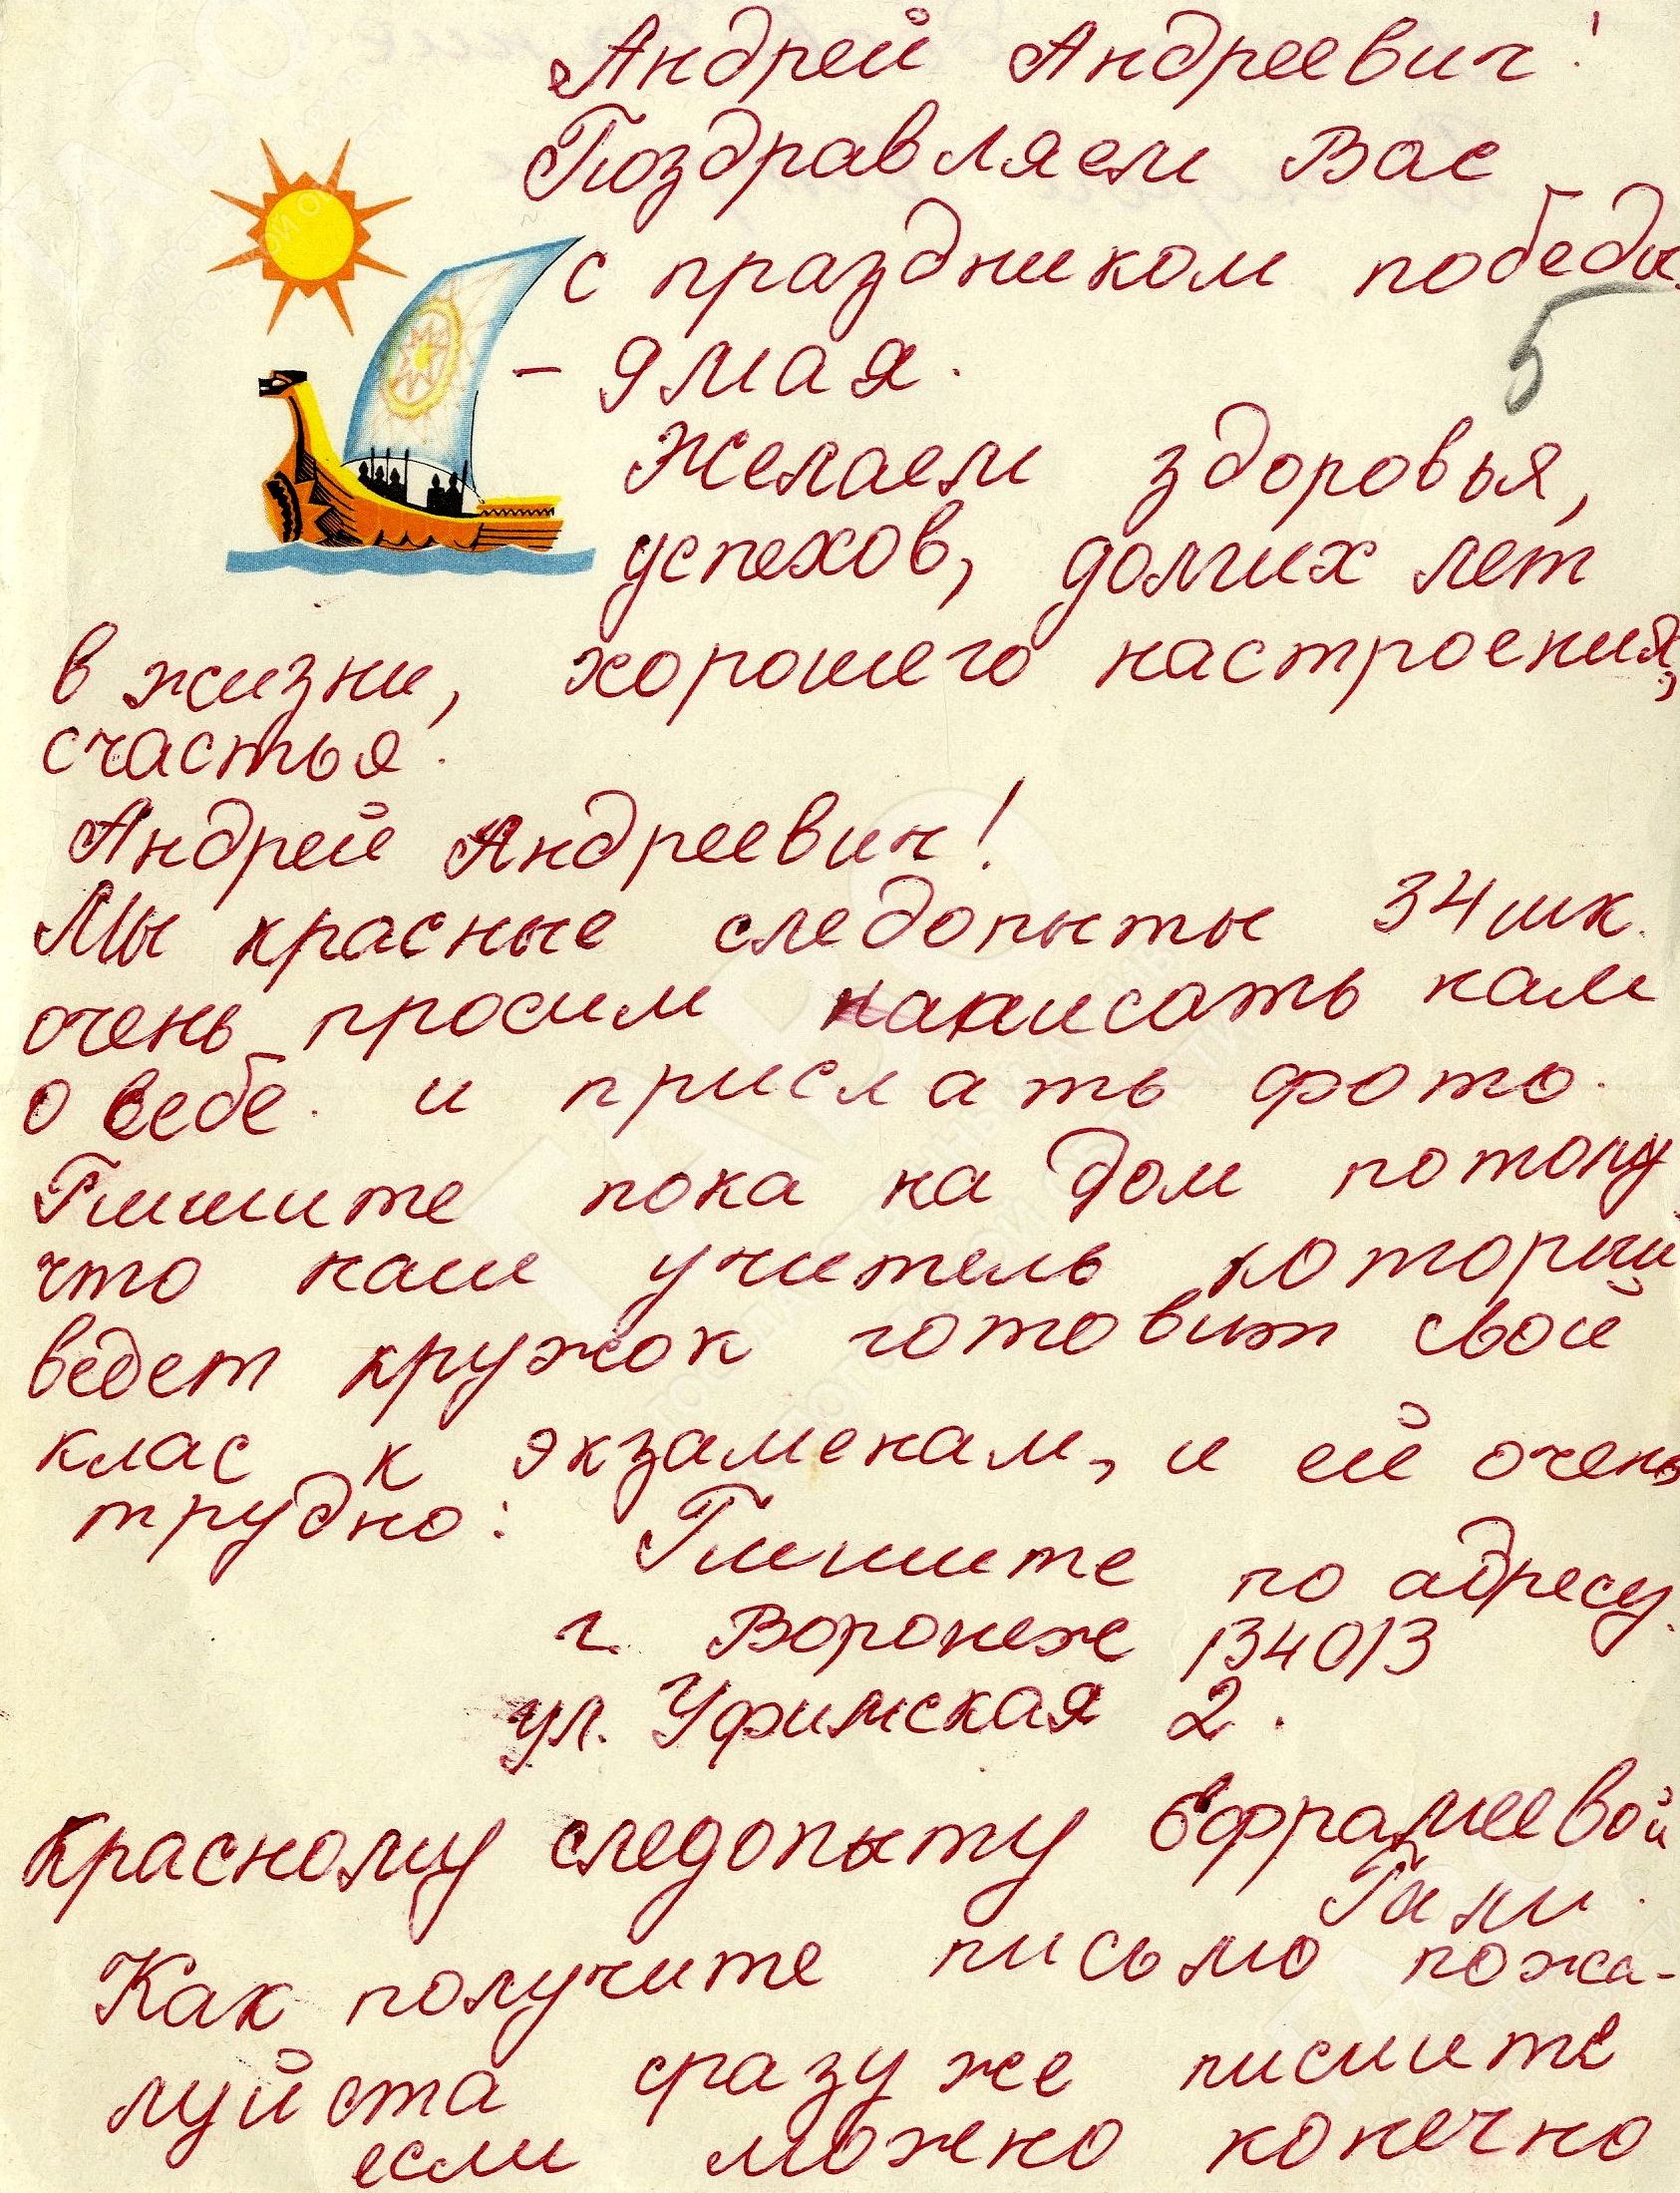 Андрей Андреевич!
Поздравляем Вас
с праздником победы
5
- 9 мая.
Желаем здоровья,
успехов, долгих лет
в жизни, хорошего настроения,
счастья.
Андрей Андреевич!
Мы красные следопыты 34 шк.
очень просим написать нам
о себе. и прислать фото.
Пишите пока на дом потому
что наш учитель который
ведет кружок готовит свой
клас к экзаменам, и ей очень
трудно: Пишите по адресу.
г. Воронеж 134013
ул. Уфимская 2.
Красному следопыту
Гали.
Как получите письмо пожа-
луйста сразу же
если можно конечно